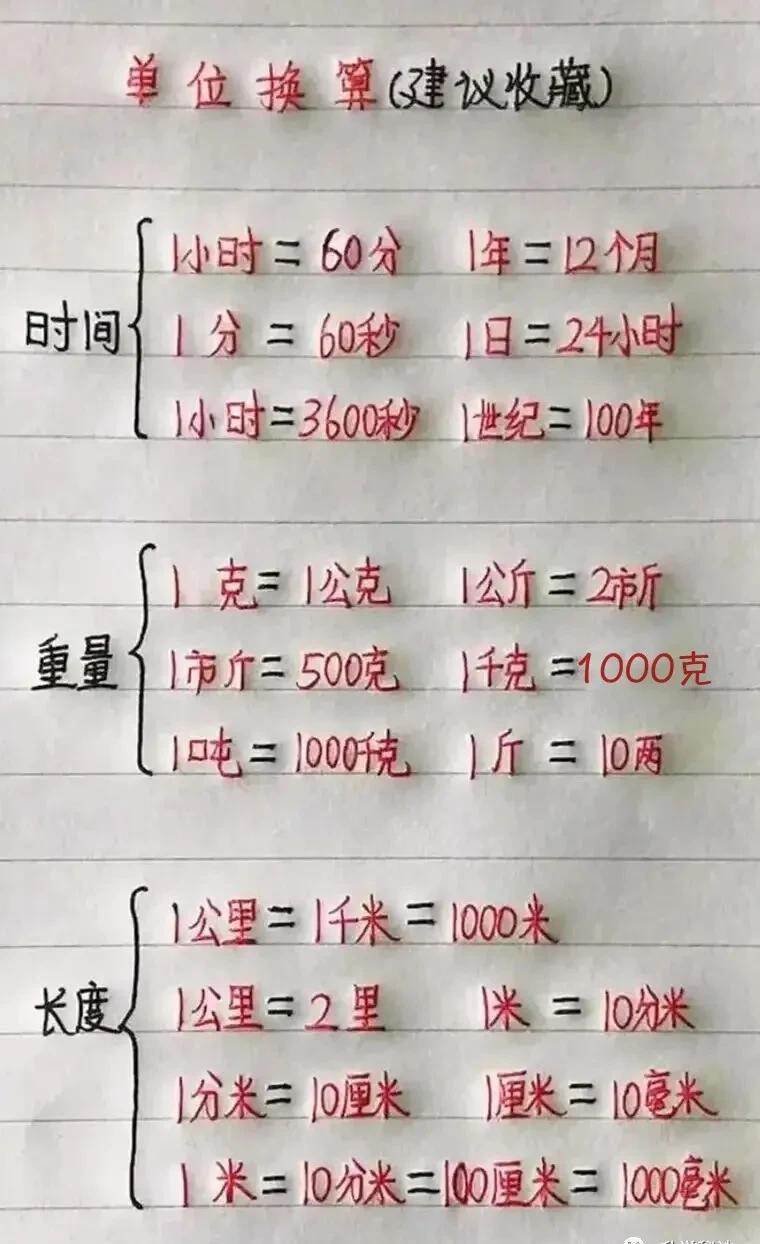 单位换算(建议收藏)
1小时=60分 1年=12个月
时间
1分=60秒 1日=24小时
1小时=3600秒 1世纪=100年
1克=1公克 1公斤=2市斤
重量
1市斤=500克 1千克=1000克
1吨=1000千克 1斤=10两
1公里=1千米=1000米
长度
1公里=2里 1米=10分米
1分米=10厘米 1厘米=10毫米
1米=10分米=100厘米=1000毫米